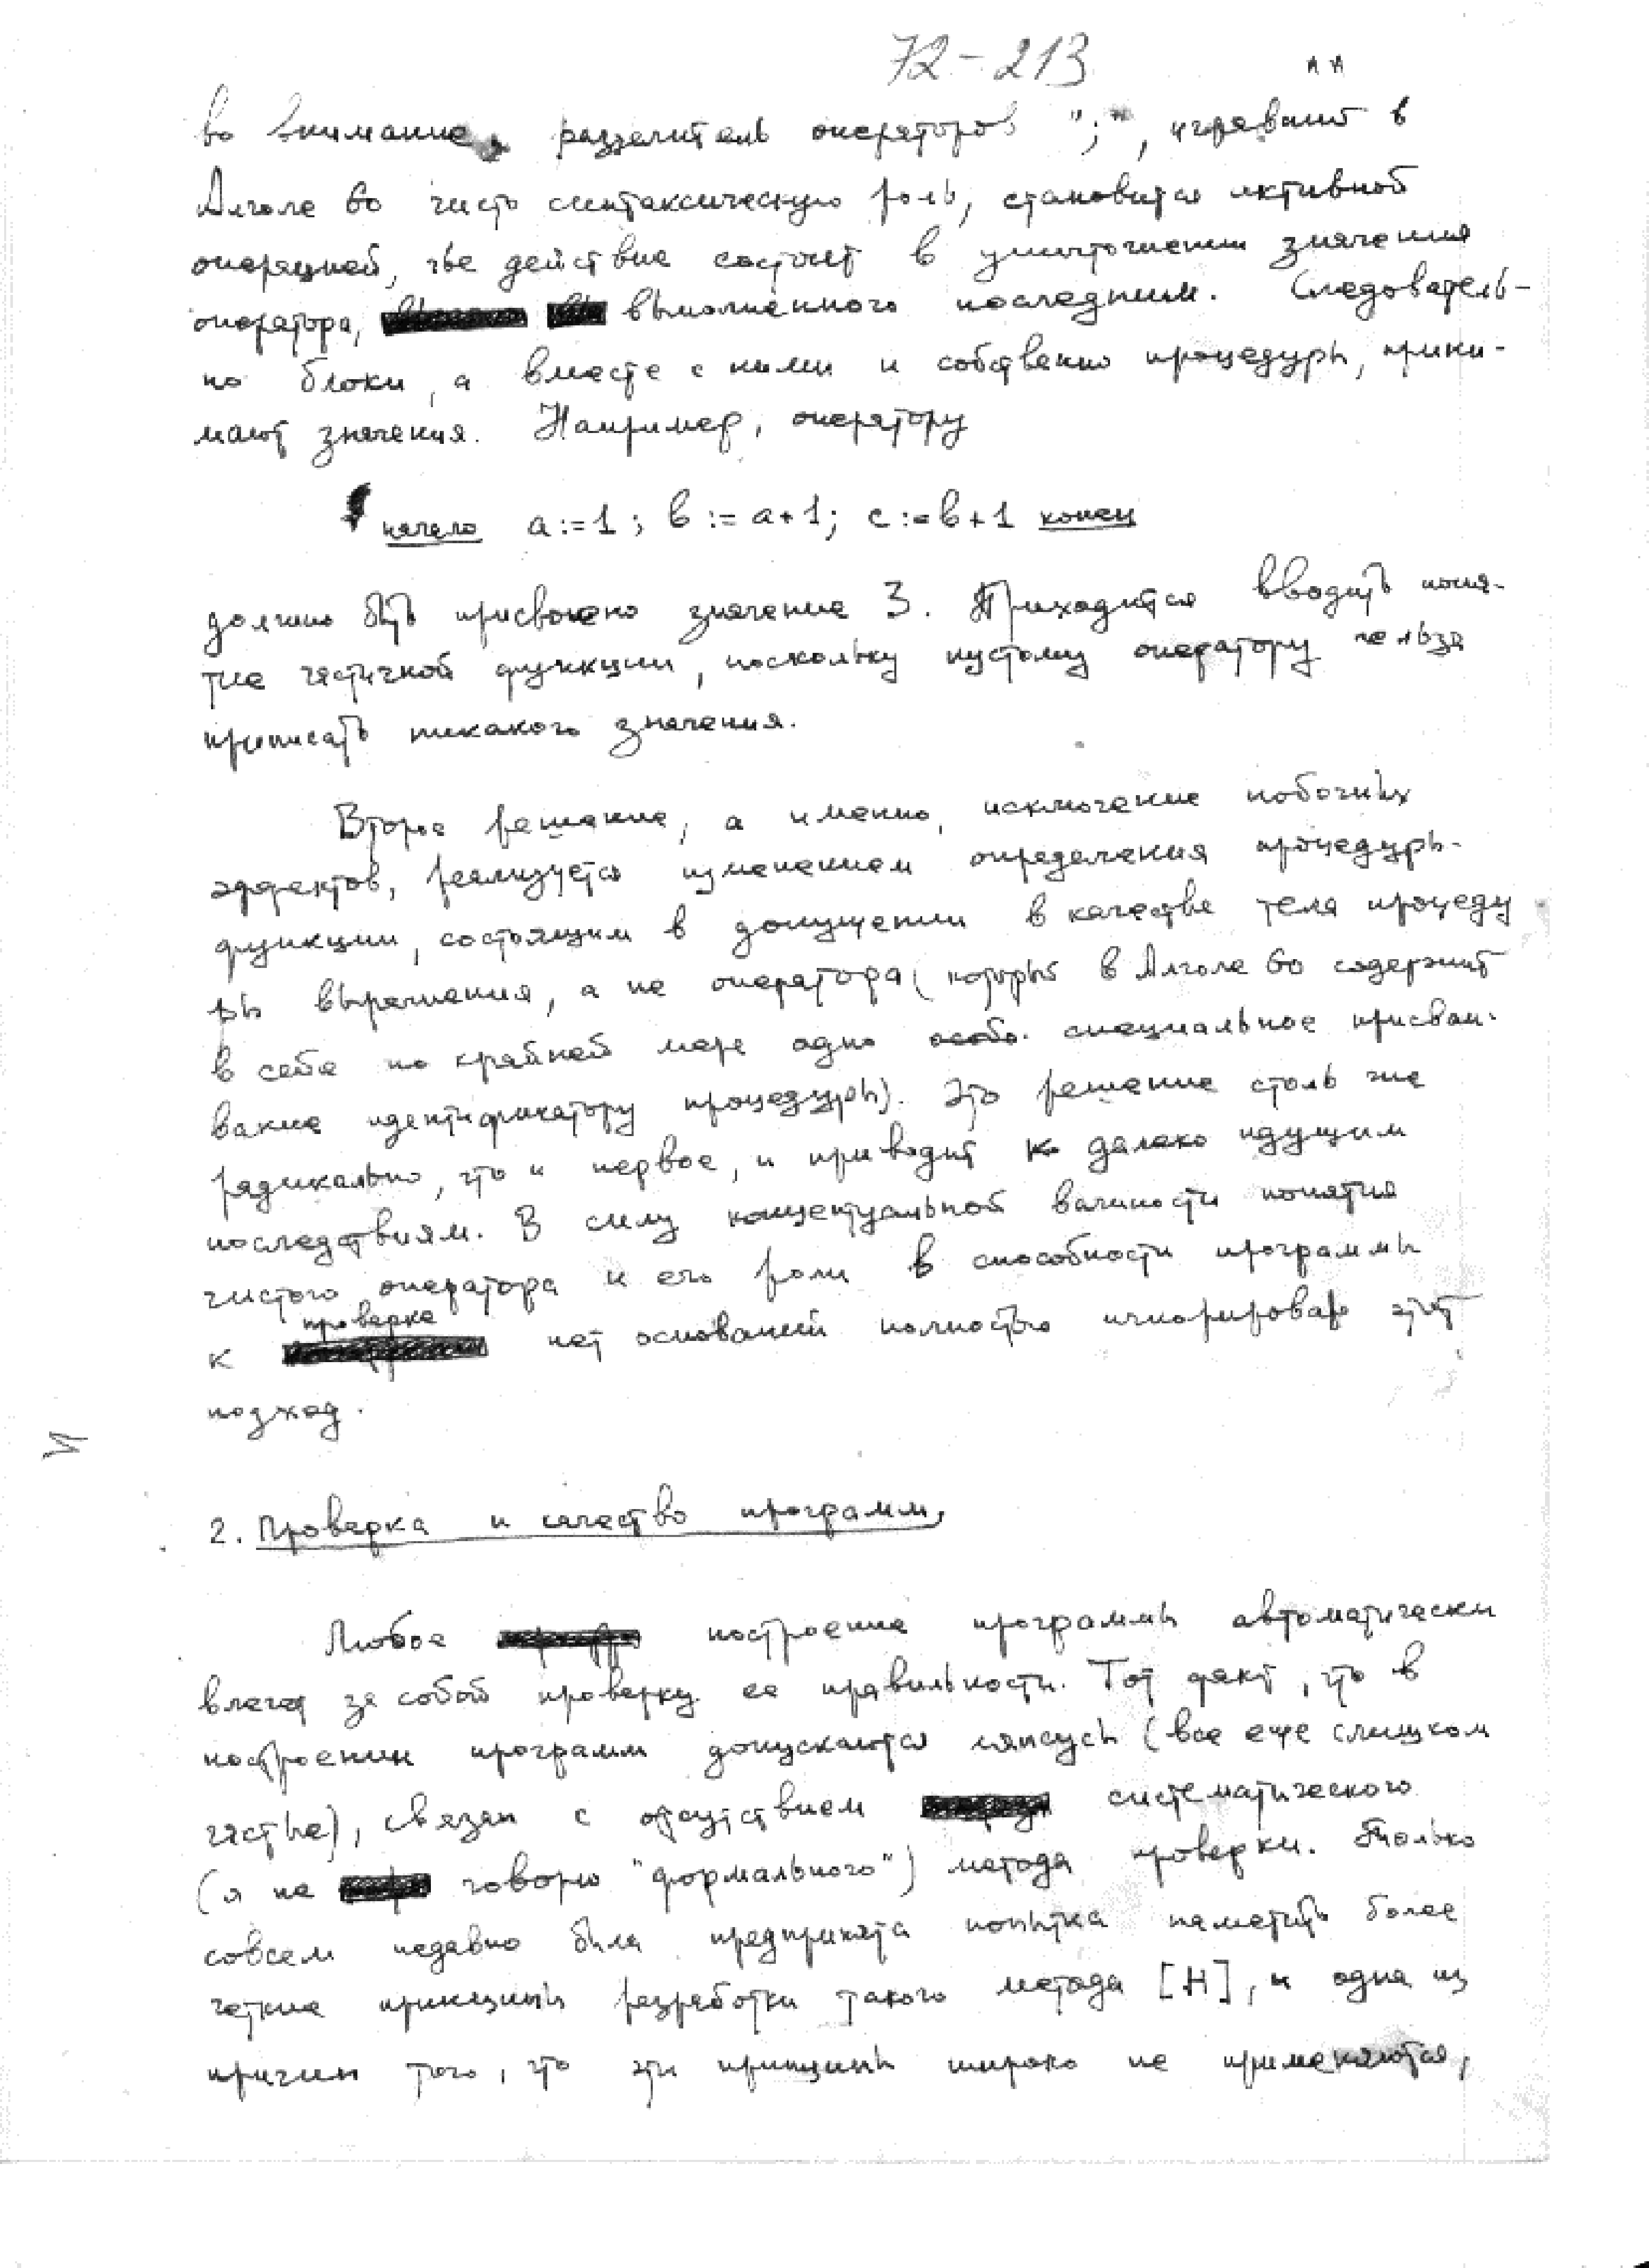 72-213
во внимание, разделитель операторов ";", игравший в
Алголе 60 чисто синтаксическую роль, становится активной
операцией, чье действие состоит в уничтожении значения
оператора, выполненного последним. Следователь-
но блоки, а вместе с ними и собственно процедуры, прини-
мают значения. Например, оператору
начало a:=1; b:=a+1; c:=b+1 конец
должно быть присвоено значение 3. Приходится вводить поня-
тие частичной функции, поскольку пустому оператору нельзя
приписать никакого значения.
Второе решение, а именно, исключение побочных
эффектов, реализуется изменением определения процедуры-
функции, состоящим в допущении в качестве тела процеду
ры выражения, а не оператора (который в Алголе 60 содержит
в себе по крайней мере одно особо. специальное присваи-
вание идентификатору процедуры). Это решение столь же
радикально, что и первое, и приводит к далеко идущим
последствиям. В силу концептуальной важности понятия
чистого оператора и его роли в способности программы
к проверке нет оснований полностью игнорировать этот
подход.
2. Проверка и качество программ.
Любое построение программы автоматически
влечет за собой проверку ее правильности. Тот факт, что в
построении программ допускаются ляпсусы (все еще слишком
частые), связан с отсутствием систематического
(я не говорю "формального") метода проверки. Только
совсем недавно была предпринята попытка наметить более
четкие принципы разработки такого метода [H], и одна из
причин того, что эти принципы широко не применяются,